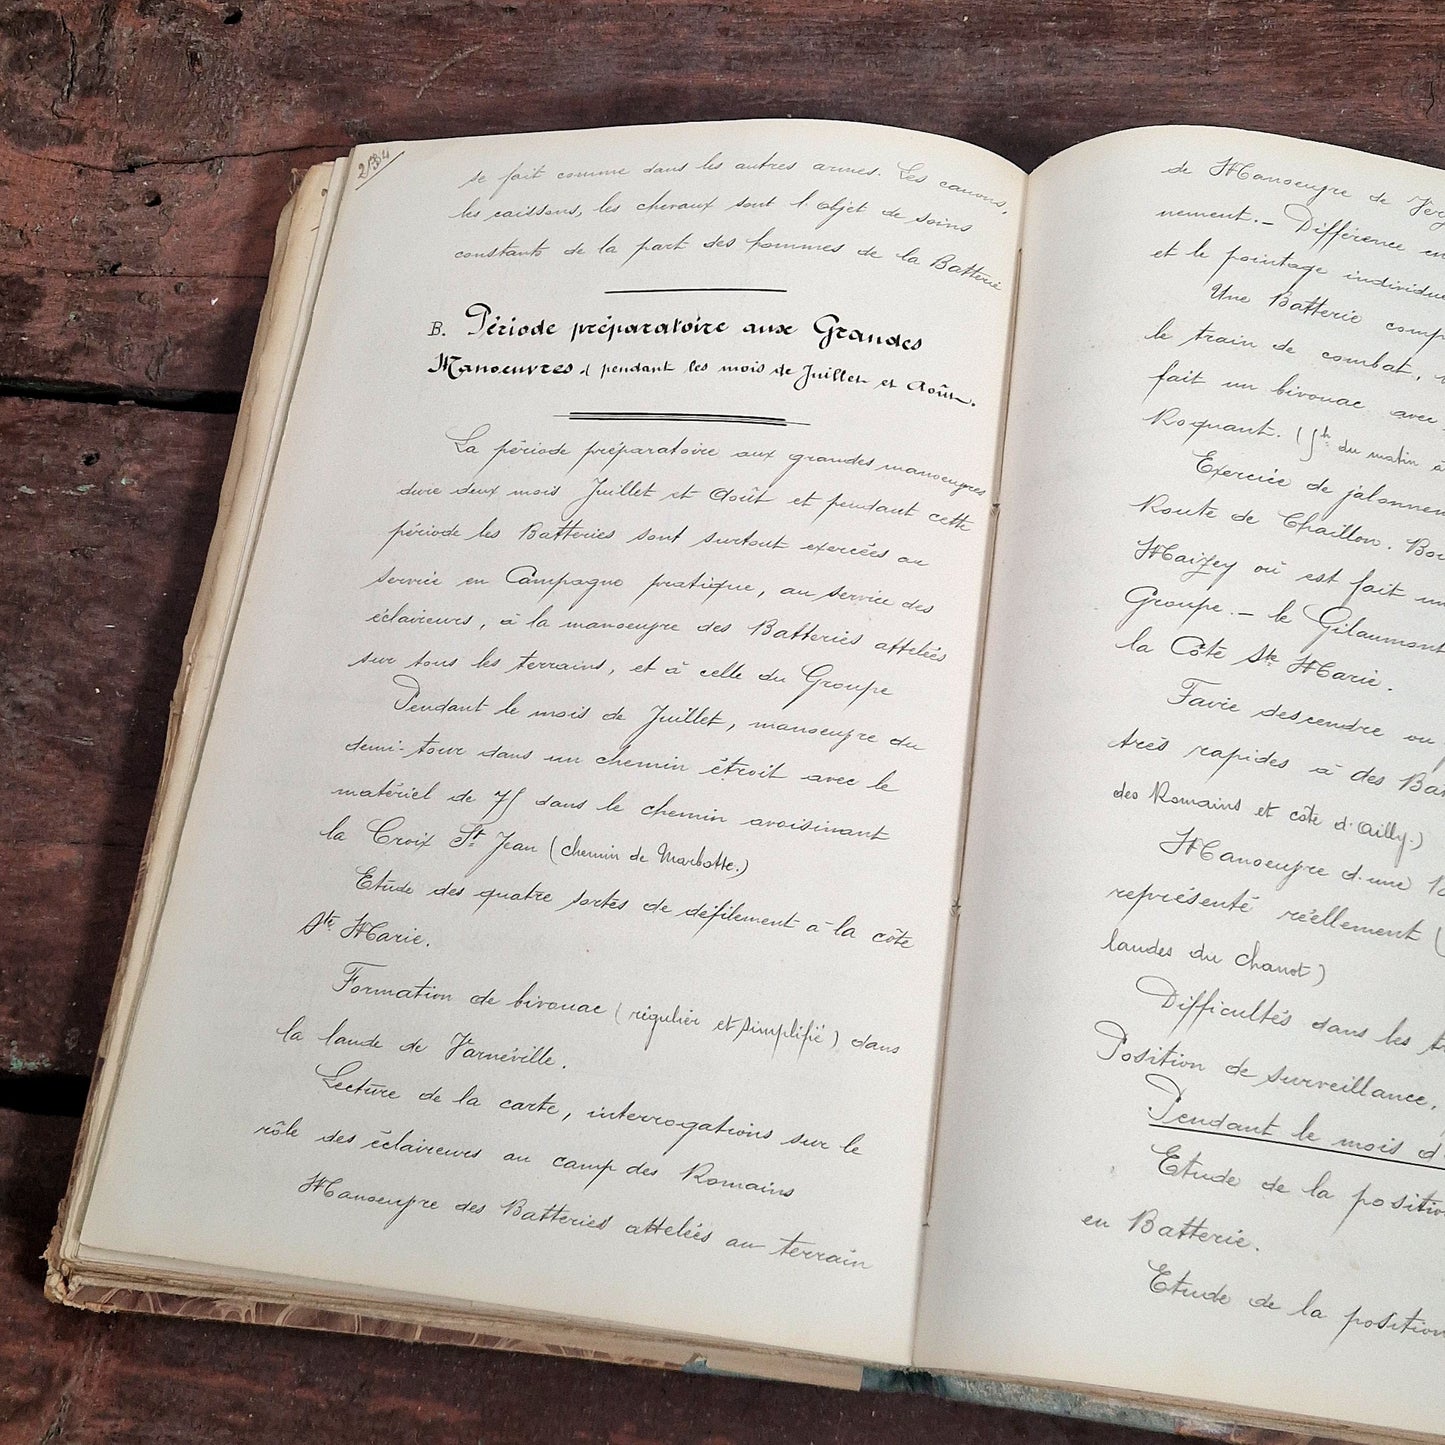 se fait comme dans les autres armes. Les canons,
les caissons, les chevaux sont l'objet de soins
constants de la part des hommes de la Batterie
B. Période préparatoire aux Grandes
Manoeuvres, pendant les mois de Juillet et Août.
La période préparatoire aux grandes manoeuvres
dure deux mois Juillet et Août et pendant cette
période les Batteries sont surtout exercées au
service en Campagne pratique, au service des
éclaireurs, à la manoeuvre des Batteries attelées
sur tous les terrains, et à celle du Groupe
Pendant le mois de Juillet, manoeuvre du
demi-tour dans un chemin étroit avec le
matériel de 75 dans le chemin avoisinant
la Croix St Jean (chemin de Marbotte.)
Etude des quatre sortes de défilement à la côte
Ste Marie.
Formation de bivouac (régulier et simplifié) dans
la lande de Varnéville.
Lecture de la carte, interrogations sur le
rôle des éclaireurs au camp des Romains
Manoeuvre des Batteries attelées au terrain
de Manoeuvre de
nement. - Différence
et le pointage
Une Batterie
le train de combat,
fait un bivouac avec
Roquant. (5h du matin à
Exercice de
Route de Chaillon.
Maizey où est fait
Groupe. - le Gilaumont
la Côte Ste Marie.
Faire descendre ou
très rapides à des
des Romains et côte d'Ailly.)
Manoeuvre d'une
représenté réellement (
landes du chanot)
Difficultés dans les
Position de surveillance,
Pendant le mois
Etude de la
en Batterie.
Etude de la